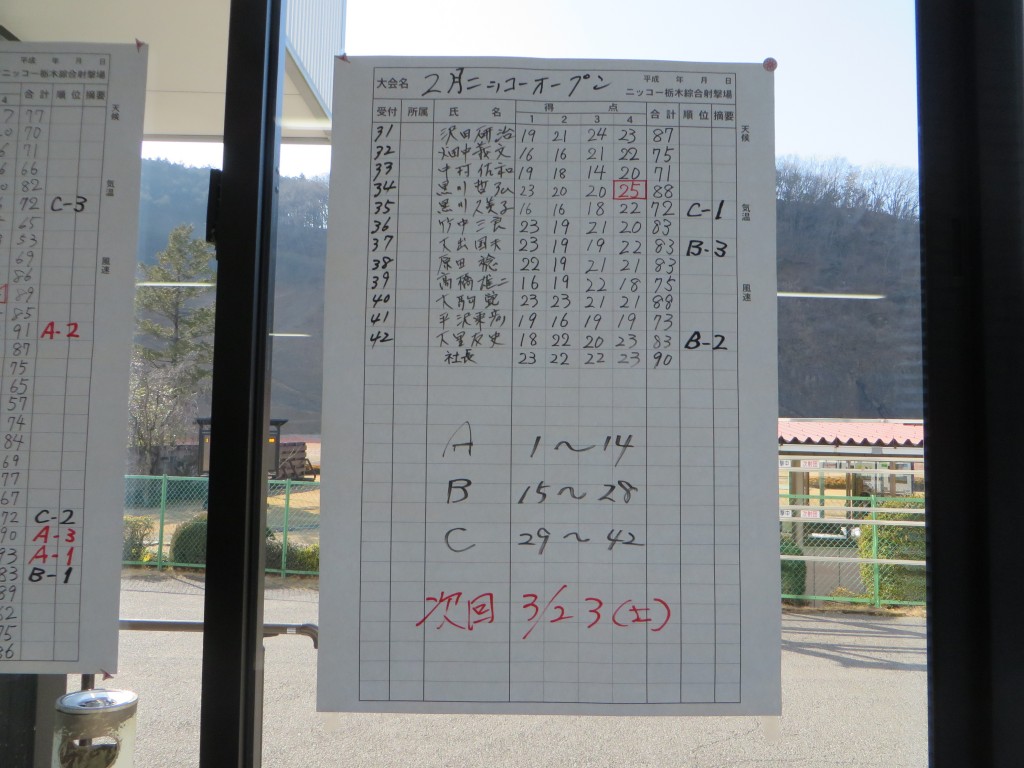 平成 年 月 日
ニッコー栃木綜合射撃場
4 合計 順位 摘要
天候
気温
風速
77
70
71
66
82
72 C-3
65
53
69
86
89
85
91 A-2
87
75
65
57
74
84
69
77
67
72 C-2
90 A-3
93 A-1
83 B-1
89
82
75
86
大会名 2月ニッコーオープン
平成 年 月 日
ニッコー栃木綜合射撃場
受付 所属 氏名 得点 合計 順位 摘要
1 2 3 4
天候
気温
風速
31 沢田研治 19 21 24 23 87
32 畑中義文 16 16 21 22 75
33 中村佐和 19 18 14 20 71
34 黒川哲弘 23 20 20 25 88
35 黒川 子 16 16 18 22 72 C-1
36 竹中三良 23 19 21 20 83
37 大出 23 19 19 22 83 B-3
38 原田稔 22 19 21 21 83
39 高橋雄二 16 19 22 18 75
40 大駒 23 23 21 21 88
41 平沢 19 16 19 19 73
42 大里友史 18 22 20 23 83 B-2
社長 23 22 22 23 90
A 1～14
B 15～28
C 29～42
次回 3/23(土)